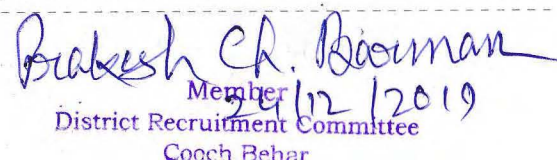 Prakash Ch. Barman
Member
24/12/2019
District Recruitment Committee
Cooch Behar